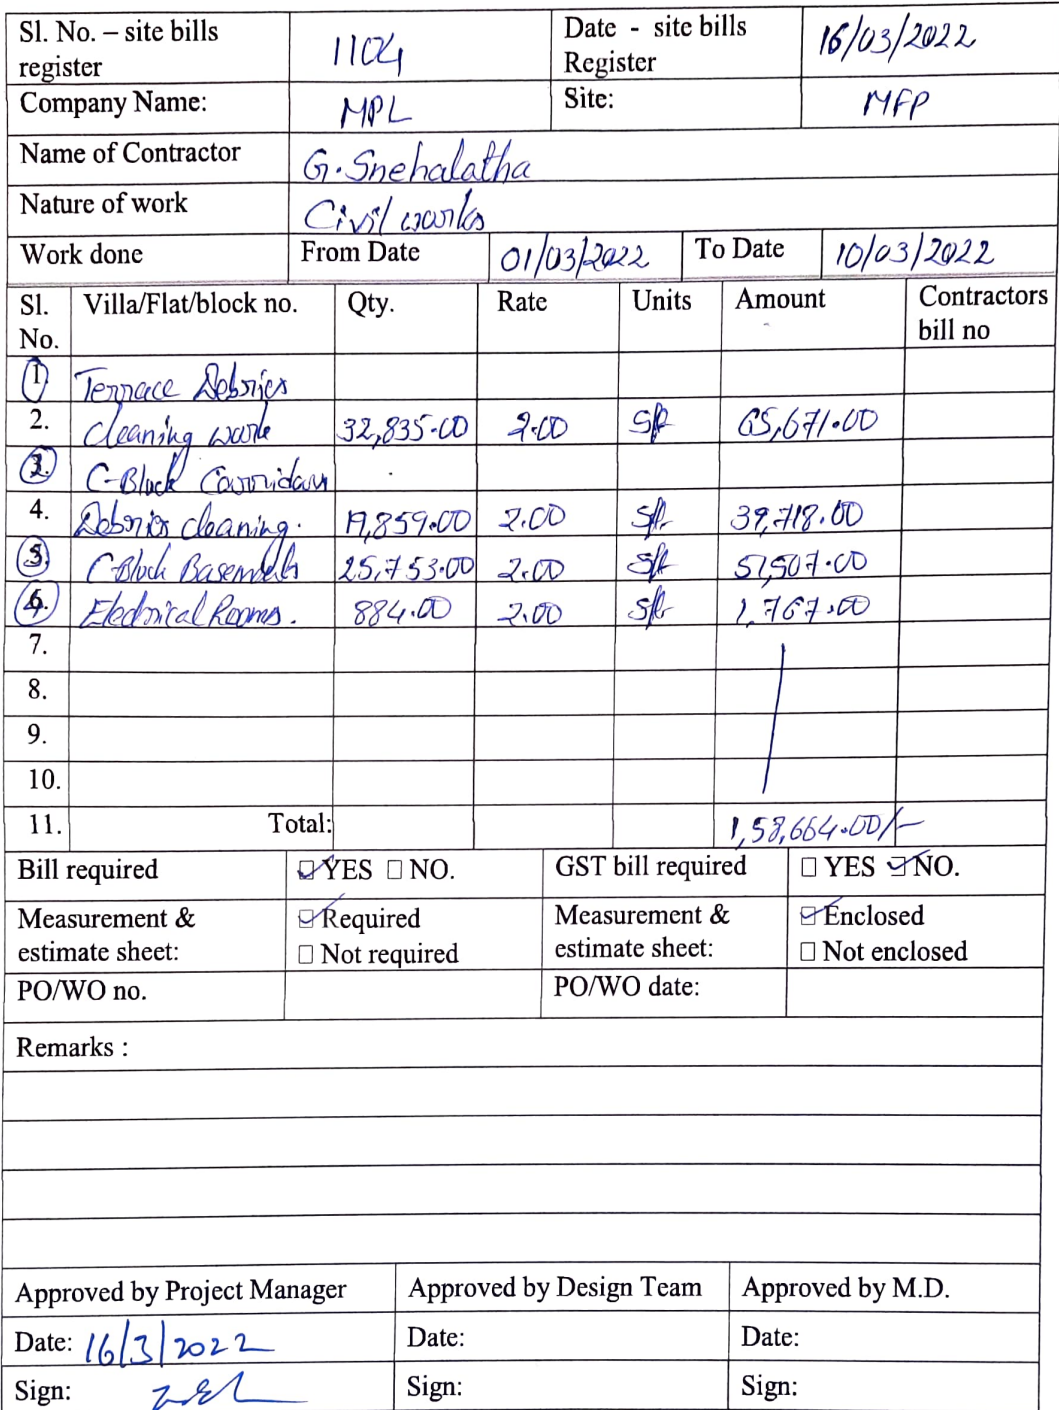 Sl. No. – site bills register 1104 Date - site bills Register 16/03/2022
Company Name: MPL Site: MFP
Name of Contractor G. Snehalatha
Nature of work Civil works
Work done From Date 01/03/2022 To Date 10/03/2022
Sl. No. Villa/Flat/block no. Qty. Rate Units Amount Contractors bill no
1. Terrace Debries
2. Cleaning work 32,835.00 2.00 Sft 65,671.00
C-Block Corridors
4. Debries cleaning. 19,859.00 2.00 Sft. 39,718.00
C-Block Basements 25,753.00 2.00 Sft 51,507.00
Electrical Rooms. 884.00 2.00 Sft 1,767.00
7.
8.
9.
10.
11. Total: 1,58,664.00/-
Bill required ☑ YES ☐ NO. GST bill required ☐ YES ☑ NO.
Measurement & estimate sheet: ☑ Required ☐ Not required Measurement & estimate sheet: ☑ Enclosed ☐ Not enclosed
PO/WO no. PO/WO date:
Remarks :
Approved by Project Manager Approved by Design Team Approved by M.D.
Date: 16/3/2022 Date: Date:
Sign: Sign: Sign: